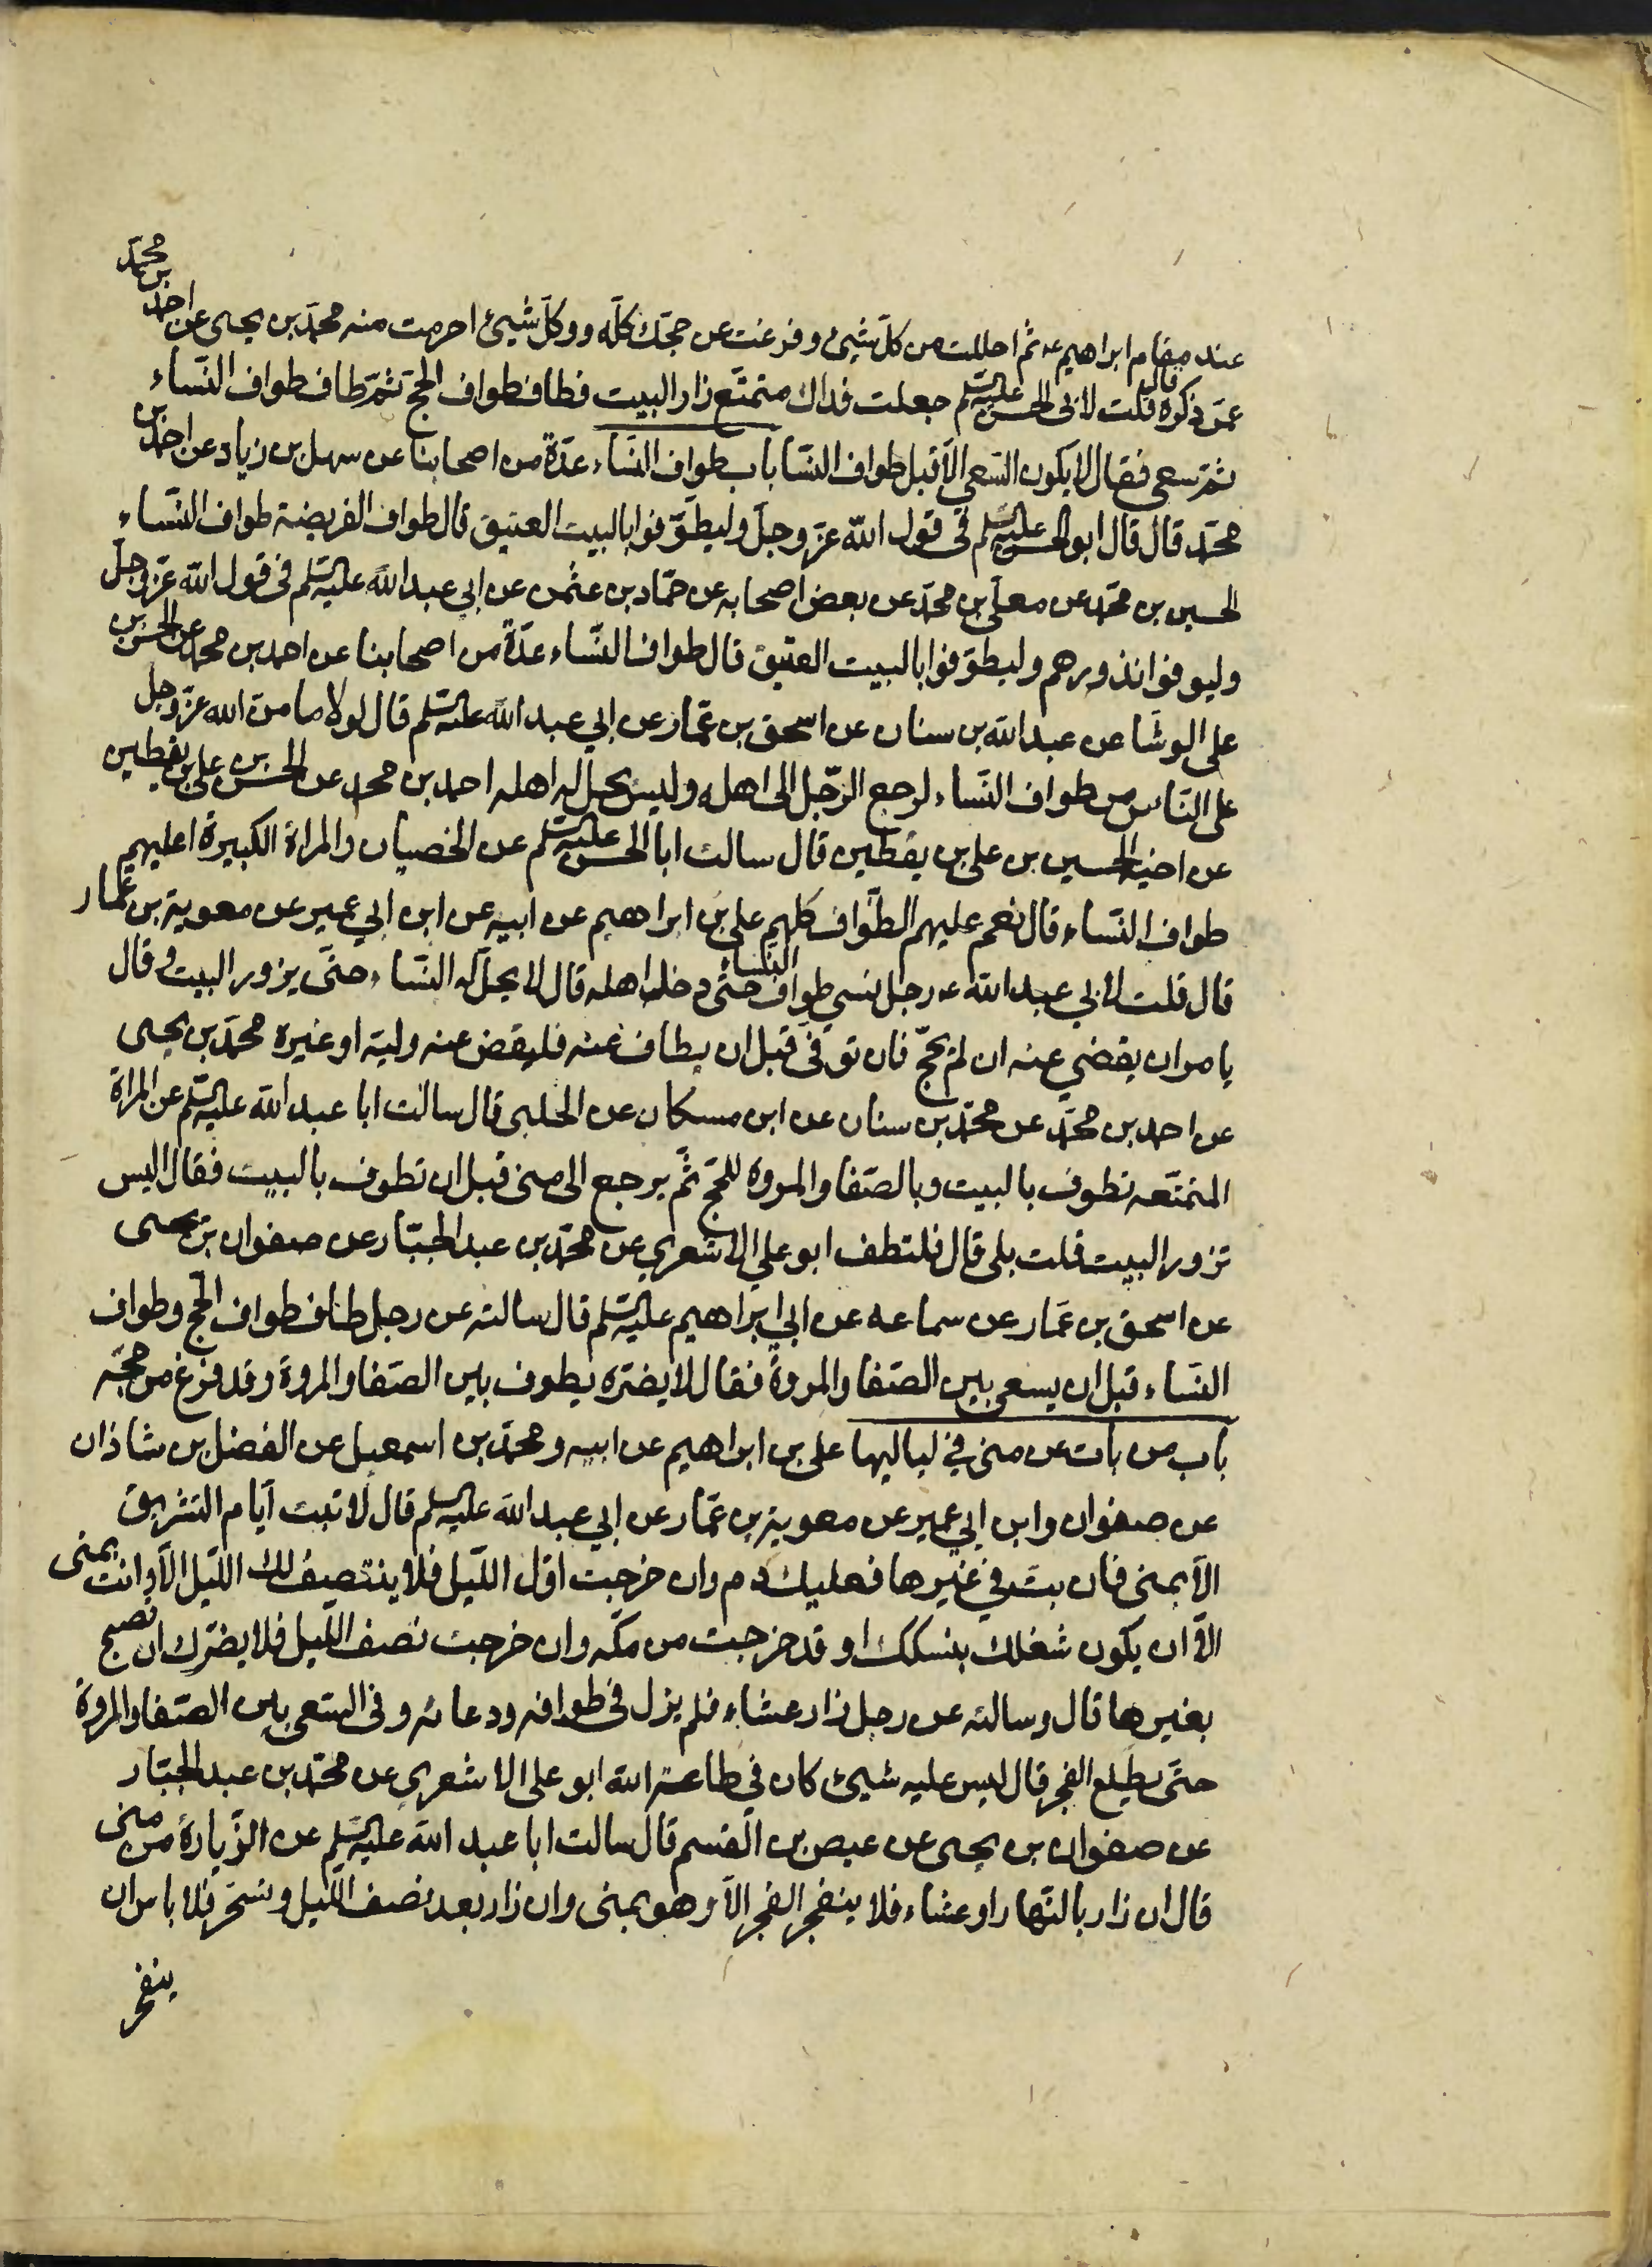 عند مقام ابراهيم ع ثم احللت من كلّ شيئ و فرغت عن حجّك كلّه و وكلّ شيئ احرمت منه محمّد بن يحيى عن احمد بن محمّد
عمّن ذكره قال قلت لابى الحسن عليه السّلم جعلت فداك متمتّع زار البيت فطاف طواف الحجّ ثمّ طاف طواف النّساء
ثمّ سعى فقال لا يكون السّعي الّا قبل طواف النّسا باب طواف النّساء عدّة من اصحابنا عن سهل بن زياد عن احمد بن
محمّد قال قال ابو الحسن عليه السّلم في قول الله عزّ وجلّ وليطّوّفوا بالبيت العتيق قال طواف الفريضة طواف النّساء
الحسين بن محمّد عن معلّى بن محمّد عن بعض اصحابه عن حمّاد بن عثمن عن ابي عبد الله عليه السّلم في قول الله عزّ وجلّ
وليوفوا نذورهم وليطوّفوا بالبيت العتيق قال طواف النّساء عدّة من اصحابنا عن احمد بن محمد عن الحسن بن
على الوشّا عن عبد الله بن سنان عن اسحق بن عمّار عن ابي عبد الله عليه السّلم قال لولا ما منّ الله عزّ وجل
على النّاس من طواف النّساء لرجع الرّجل الى اهله وليس يحلّ له اهله احمد بن محمد عن الحسن بن على بن يقطين
عن اخيه الحسين بن على بن يقطين قال سالت ابا الحسن عليه السّلم عن الخصيان والمراة الكبيرة اعليهم
طواف النّساء قال نعم عليهم الطّواف كلهم على بن ابراهيم عن ابيه عن ابن ابي عمير عن معوية بن عمّار
قال قلت لابي عبد الله ع رجل نسي طواف النّساء حتّى دخل اهله قال لا يحلّ له النّساء حتّى يزور البيت وقال
يامر ان يقضي عنه ان لم يحجّ فان توفّى قبل ان يطاف عنه فليقض عنه وليّه او غيره محمّد بن يحيى
عن احمد بن محمّد عن محمّد بن سنان عن ابن مسكان عن الحلبى قال سالت ابا عبد الله عليه السّلم عن المراة
المتمتّعه تطوف بالبيت وبالصّفا والمروة للحجّ ثمّ يرجع الى منى قبل ان تطوف بالبيت فقال اليس
تزور البيت قلت بلى قال فلتطف ابو علي الاشعري عن محمّد بن عبد الجبّار عن صفوان بن يحيى
عن اسحق بن عمّار عن سماعه عن ابي ابراهيم عليه السّلم قال سالته عن رجل طاف طواف الحجّ وطواف
النّساء قبل ان يسعى بين الصّفا والمروة فقال لا يضرّه يطوف بين الصّفا والمروة وقد فرغ من حجّه
باب من بات عن منى في لياليها على بن ابراهيم عن ابيه و محمّد بن اسمعيل عن الفضل بن شاذان
عن صفوان وابن ابي عمير عن معوية بن عمّار عن ابي عبد الله عليه السلم قال لا تبت ايّام التشريق
الّا بمنى فان بتّ في غيرها فعليك دم وان خرجت اوّل اللّيل فلا ينتصف لك اللّيل الّا وانت بمنى
الّا ان يكون شغلك بنسكك او قد خرجت من مكّه وان خرجت نصف اللّيل فلا يضرّك ان تصبح
بغيرها قال وسالته عن رجل زار عشاء فلم يزل في طوافه ودعائه و فى السّعي بين الصّفا والمروة
حتّى يطلع الفجر قال ليس عليه شيئ كان في طاعة الله ابو على الاشعري عن محمّد بن عبد الجبّار
عن صفوان بن يحيى عن عيص بن القسم قال سالت ابا عبد الله عليه السّلم عن الزّيارة من منى
قال ان زار بالنّهار او عشاء فلا ينفجر الفجر الّا وهو بمنى وان زار بعد نصف اللّيل وبسَحَر فلا باس ان
ينفجر